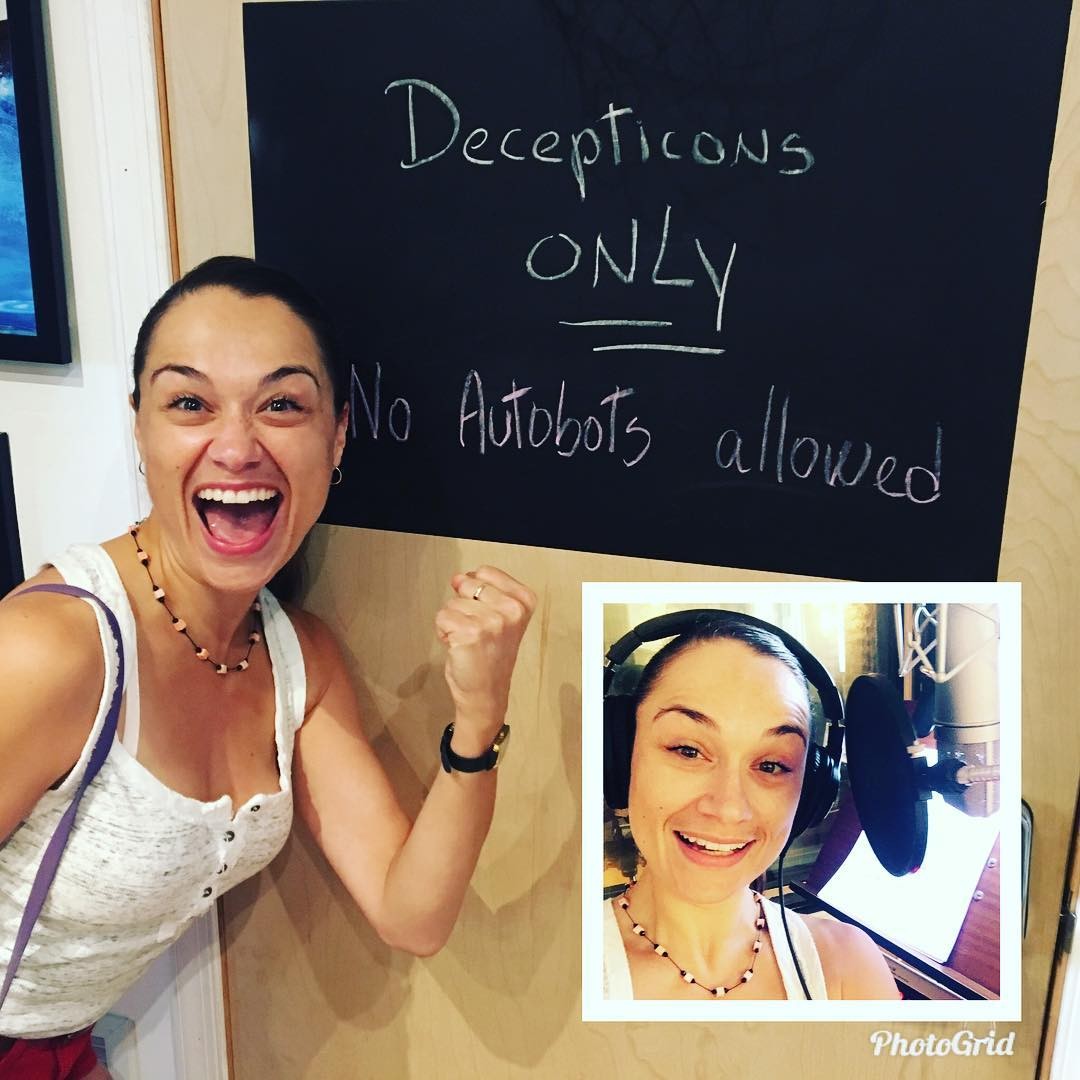 Decepticons
ONLY
No Autobots allowed
PhotoGrid